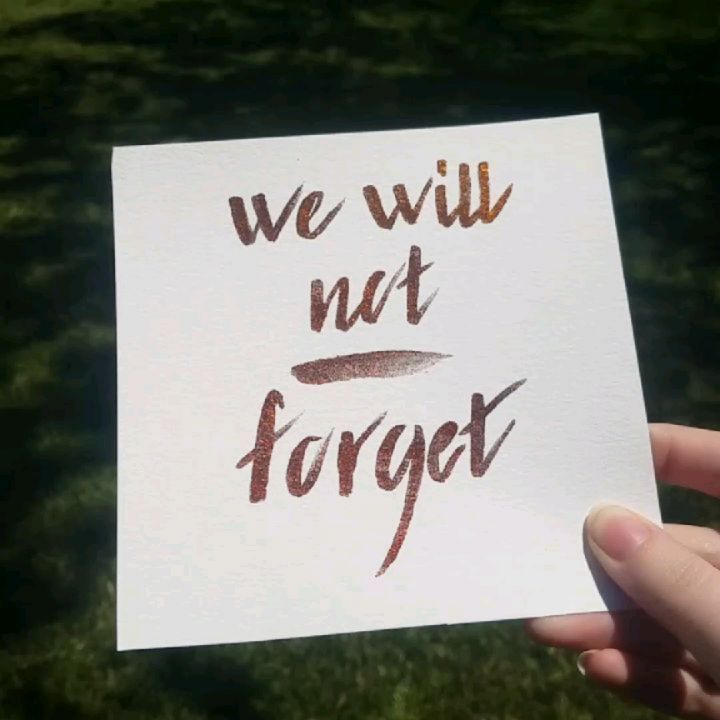 we will
not
forget